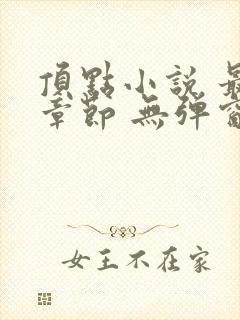 頂點小說 最
章節 無彈窗
女王不在家